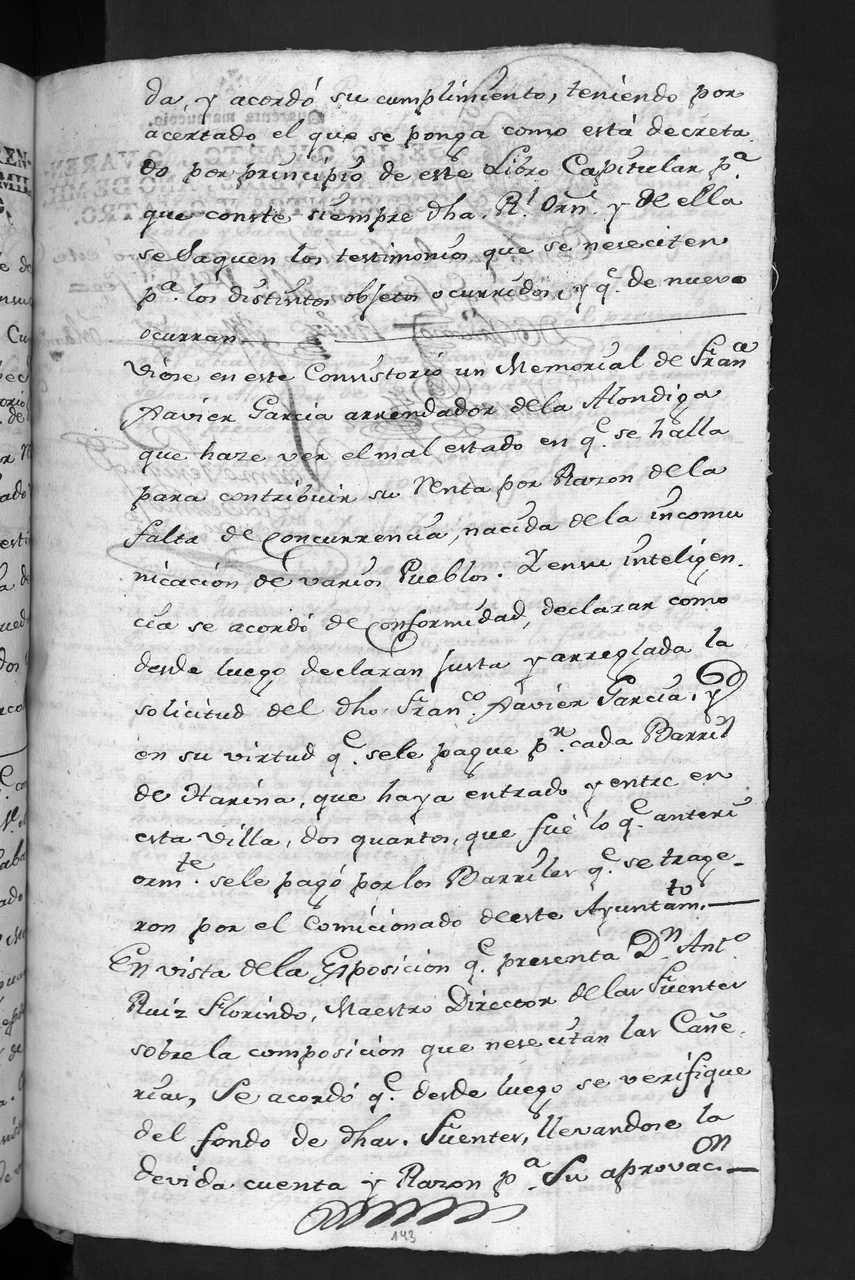 da, y acordó su cumplimiento, teniendo por
acertado el que se ponga como está decreta
do por principio de este Libro Capitular p.ª
que conste siempre dha. R.l Orn. y de ella
se saquen los testimonios que se neseciten
p.ª los distintos objetos ocurridos, y q.e de nuevo
ocurran
Viose en este Consistorio un Memorial de Fran.co
Xavier Garcia arrendador dela Alondiga
que haze ver el mal estado en q.e se halla
para contribuir su renta por Razon de la
falta de Concurrencia, nacida de la incomu
nicación de varios Pueblos. Y en su inteligen.
cia se acordó de conformidad, declarar como
desde luego declaran justa y arreglada la
solicitud del dho. Fran.co Xavier Garcia, y
en su virtud q.e sele pague p.r cada Barril
de Harina, que haya entrado y entre en
esta Villa, dos quartos, que fué lo q.e anteri
orm.te sele pagó por los Barriles q.e se trage-
ron por el Comicionado de este Ayuntam.to
En vista de la Esposicion q.e presenta D.n Ant.o
Ruiz Florindo, Maestro Director de las Fuentes
sobre la composicion que nesecitan las Cañe.
rias, Se acordó q.e desde luego se verifique
del fondo de dhas. Fuentes, llevandose la
devida cuenta y Razon p.a Su aprovac.on
143